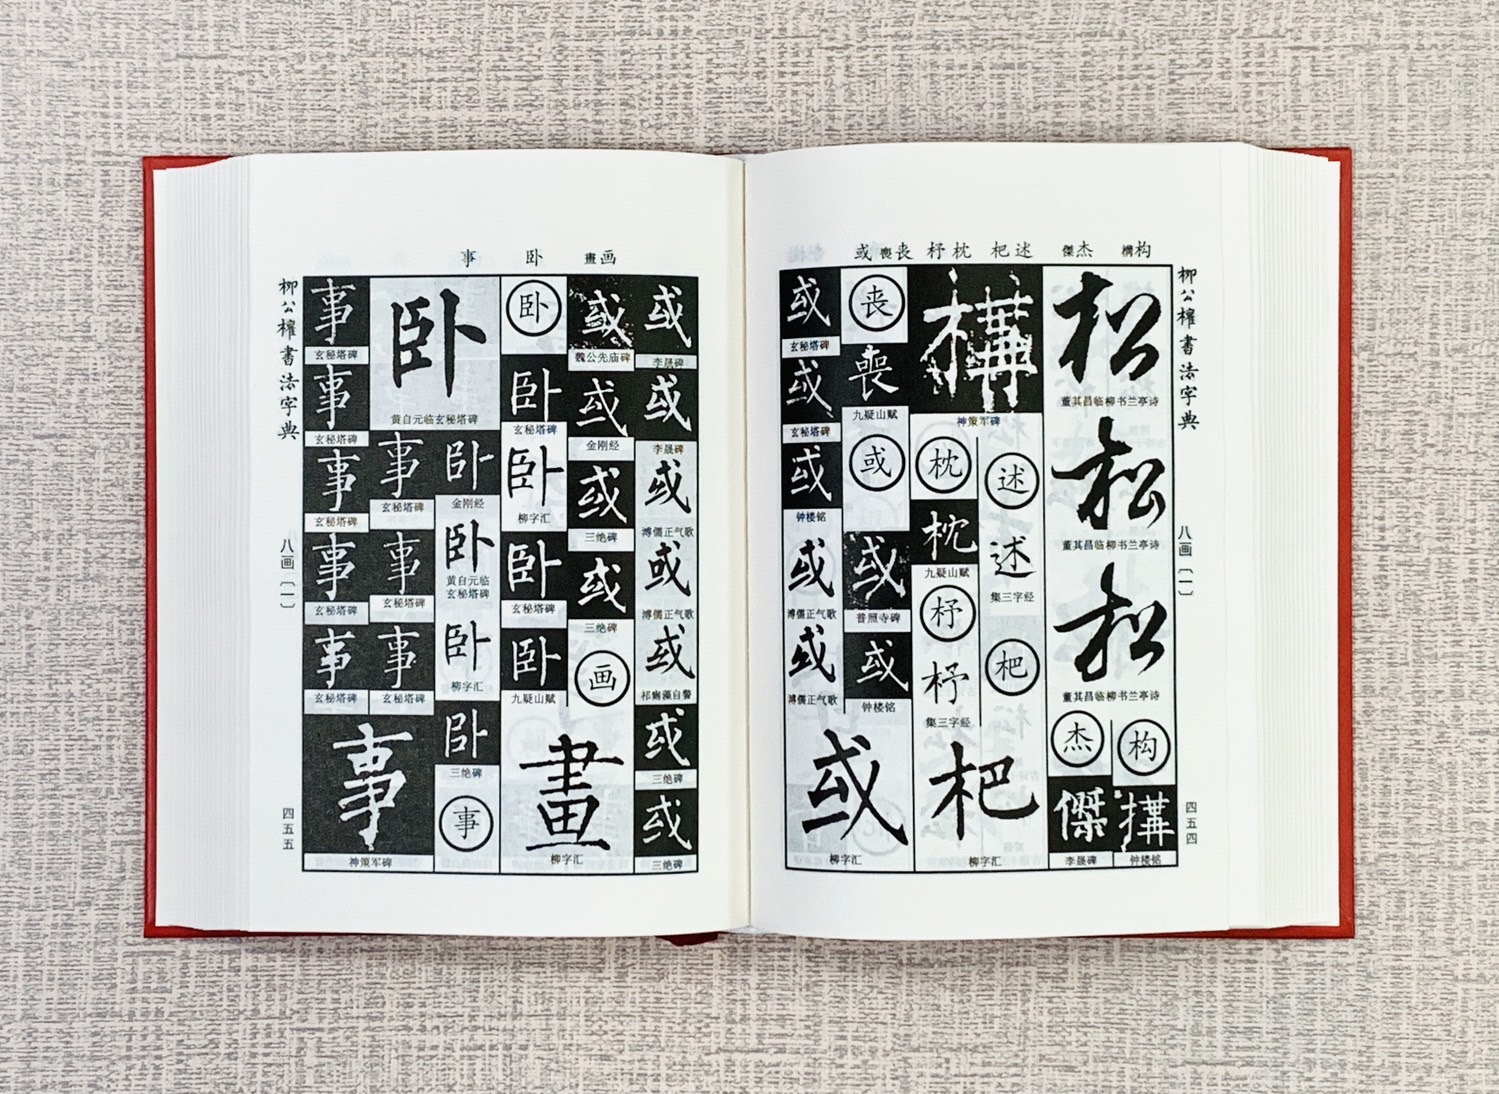 构構
杰傑
述
杷
枕
杼
丧喪
或
柳公權書法字典
八画〔一〕
四五四
松
董其昌临柳书兰亭诗
松
董其昌临柳书兰亭诗
松
董其昌临柳书兰亭诗
构
構
钟楼铭
杰
傑
李晟碑
構
神策军碑
述
述
集三字经
杷
杷
柳字汇
枕
枕
九疑山赋
杼
杼
集三字经
丧
喪
九疑山赋
或
或
普照寺碑
或
钟楼铭
或
玄秘塔碑
或
玄秘塔碑
或
钟楼铭
或
溥儒正气歌
或
溥儒正气歌
或
柳字汇
画畫
卧
事
或
李晟碑
或
李晟碑
或
溥儒正气歌
或
溥儒正气歌
或
祁寯藻自警
或
三绝碑
或
三绝碑
或
魏公先庙碑
或
金刚经
或
三绝碑
或
三绝碑
画
畫
柳字汇
卧
卧
玄秘塔碑
卧
柳字汇
卧
玄秘塔碑
卧
九疑山赋
卧
黄自元临玄秘塔碑
卧
金刚经
卧
黄自元临
玄秘塔碑
卧
柳字汇
卧
三绝碑
事
事
玄秘塔碑
事
玄秘塔碑
事
玄秘塔碑
事
玄秘塔碑
事
玄秘塔碑
事
玄秘塔碑
事
玄秘塔碑
事
玄秘塔碑
事
神策军碑
柳公權書法字典
八画〔一〕
四五五